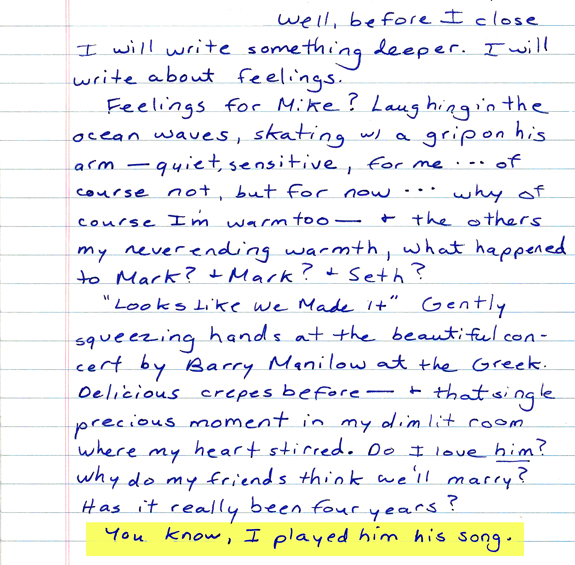 Well, before I close
I will write something deeper. I will
write about feelings.
Feelings for Mike? Laughing in the
ocean waves, skating w/ a grip on his
arm — quiet, sensitive, for me ... of
course not, but for now ... why of
course I'm warm too — + the others
my neverending warmth, what happened
to Mark? + Mark? + Seth?
"Looks Like We Made it" Gently
squeezing hands at the beautiful con-
cert by Barry Manilow at the Greek.
Delicious crepes before — + that single
precious moment in my dimlit room
where my heart stirred. Do I love him?
Why do my friends think we'll marry?
Has it really been four years?
You know, I played him his song.